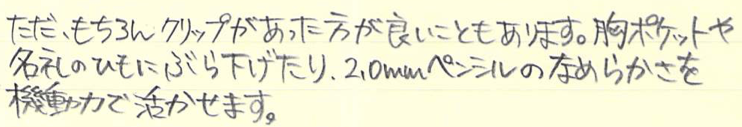 ただ、もちろんクリップがあった方が良いこともあります。胸ポケットや
名札のひもにぶら下げたり、2.0mmペンシルのなめらかさを
機動力で活かせます。